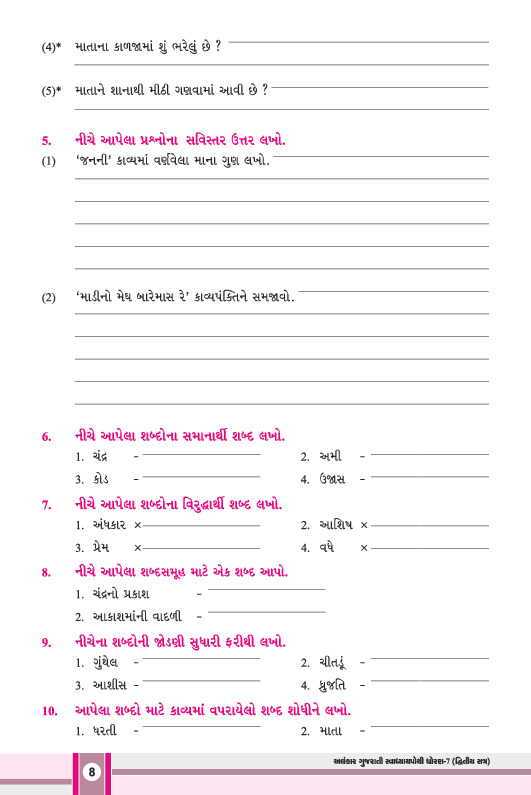 (4)* માતાના કાળજામાં શું ભરેલું છે ?
(5)* માતાને શાનાથી મીઠી ગણવામાં આવી છે ?
5. નીચે આપેલા પ્રશ્નોના સવિસ્તર ઉત્તર લખો.
(1) ‘જનની’ કાવ્યમાં વર્ણવેલા માના ગુણ લખો.
(2) ‘માડીનો મેઘ બારેમાસ રે’ કાવ્યપંક્તિને સમજાવો.
6. નીચે આપેલા શબ્દોના સમાનાર્થી શબ્દ લખો.
1. ચંદ્ર – 2. અમી –
3. કોડ – 4. ઉજાસ –
7. નીચે આપેલા શબ્દોના વિરુદ્ધાર્થી શબ્દ લખો.
1. અંધકાર × 2. આશિષ ×
3. પ્રેમ × 4. વધે ×
8. નીચે આપેલા શબ્દસમૂહ માટે એક શબ્દ આપો.
1. ચંદ્રનો પ્રકાશ –
2. આકાશમાંની વાદળી –
9. નીચેના શબ્દોની જોડણી સુધારી ફરીથી લખો.
1. ગુંથેલ – 2. ચીતડૂં –
3. આશીસ – 4. ધ્રુજતિ –
10. આપેલા શબ્દો માટે કાવ્યમાં વપરાયેલો શબ્દ શોધીને લખો.
1. ધરતી – 2. માતા –
8 અલંકાર ગુજરાતી સ્વાધ્યાયપોથી ધોરણ-7 (દ્વિતીય સત્ર)